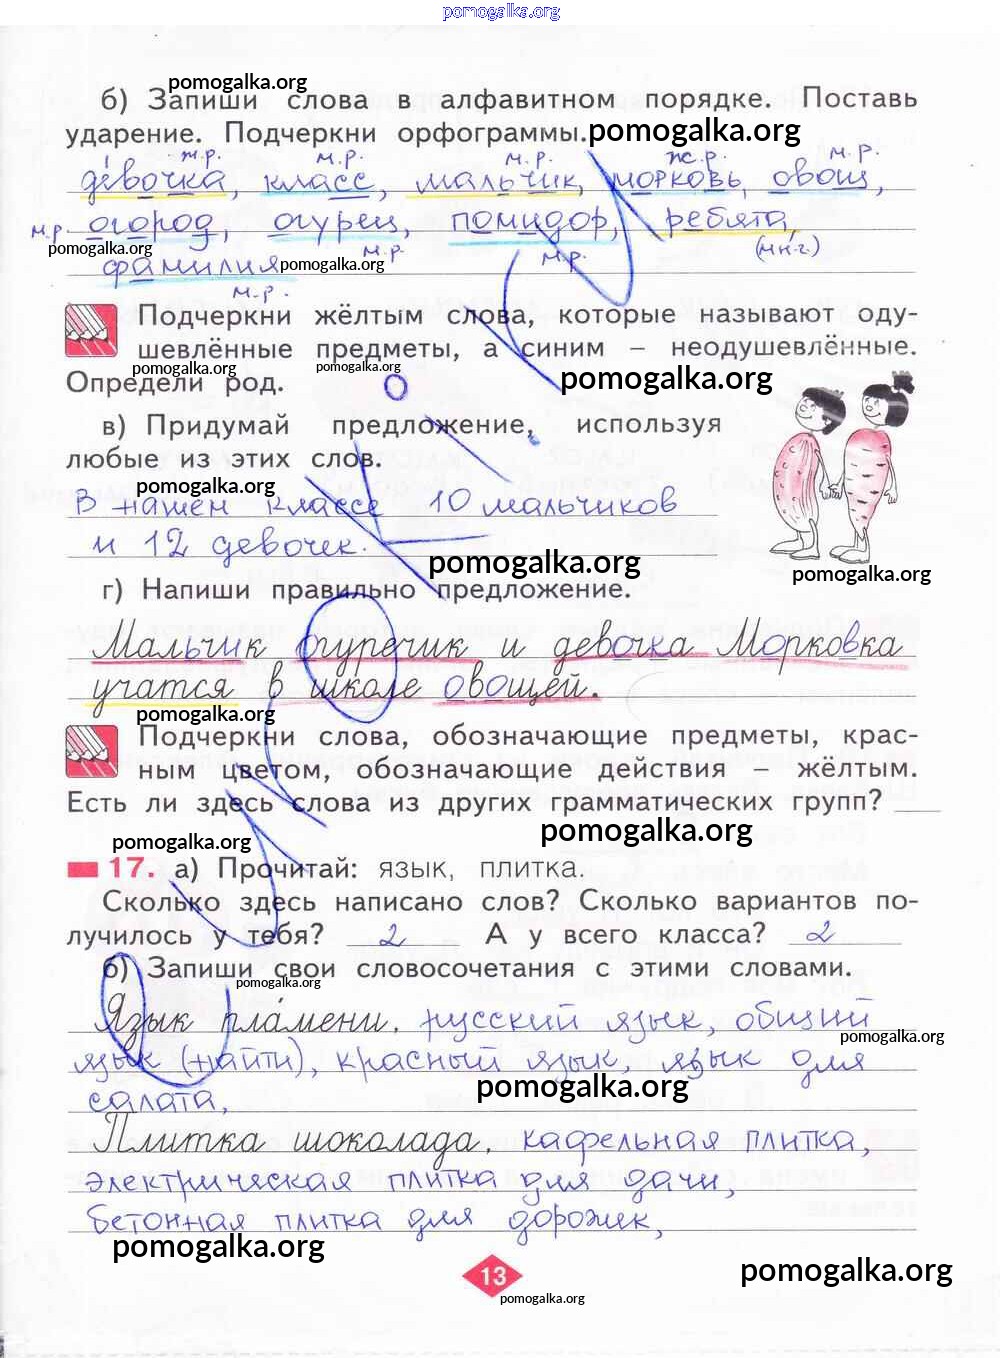 pomogalka.org
pomogalka.org
б) Запиши слова в алфавитном порядке. Поставь
ударение. Подчеркни орфограммы.
pomogalka.org
ж.р. м.р. м.р. ж.р. м.р.
девочка, класс, мальчик, морковь, овощ,
м.р. огород, огурец, помидор, ребята,
pomogalka.org
фамилия
pomogalka.org
м.р. м.р. (мн.г.)
м.р.
Подчеркни жёлтым слова, которые называют оду-
шевлённые предметы, а синим – неодушевлённые.
pomogalka.org
pomogalka.org
pomogalka.org
Определи род.
в) Придумай предложение, используя
любые из этих слов.
pomogalka.org
В нашем классе 10 мальчиков
и 12 девочек.
pomogalka.org
pomogalka.org
г) Напиши правильно предложение.
Мальчик огуречик и девочка Морковка
учатся в школе овощей.
pomogalka.org
Подчеркни слова, обозначающие предметы, крас-
ным цветом, обозначающие действия – жёлтым.
Есть ли здесь слова из других грамматических групп?
pomogalka.org
pomogalka.org
17. а) Прочитай: язык, плитка.
Сколько здесь написано слов? Сколько вариантов по-
лучилось у тебя? 2 А у всего класса? 2
б) Запиши свои словосочетания с этими словами.
pomogalka.org
Язык пла́мени, русский язык, общий
pomogalka.org
язык (найти), красный язык, язык для
pomogalka.org
салата,
Плитка шоколада, кафельная плитка,
электрическая плитка для дачи,
бетонная плитка для дорожек,
pomogalka.org
pomogalka.org
13
pomogalka.org